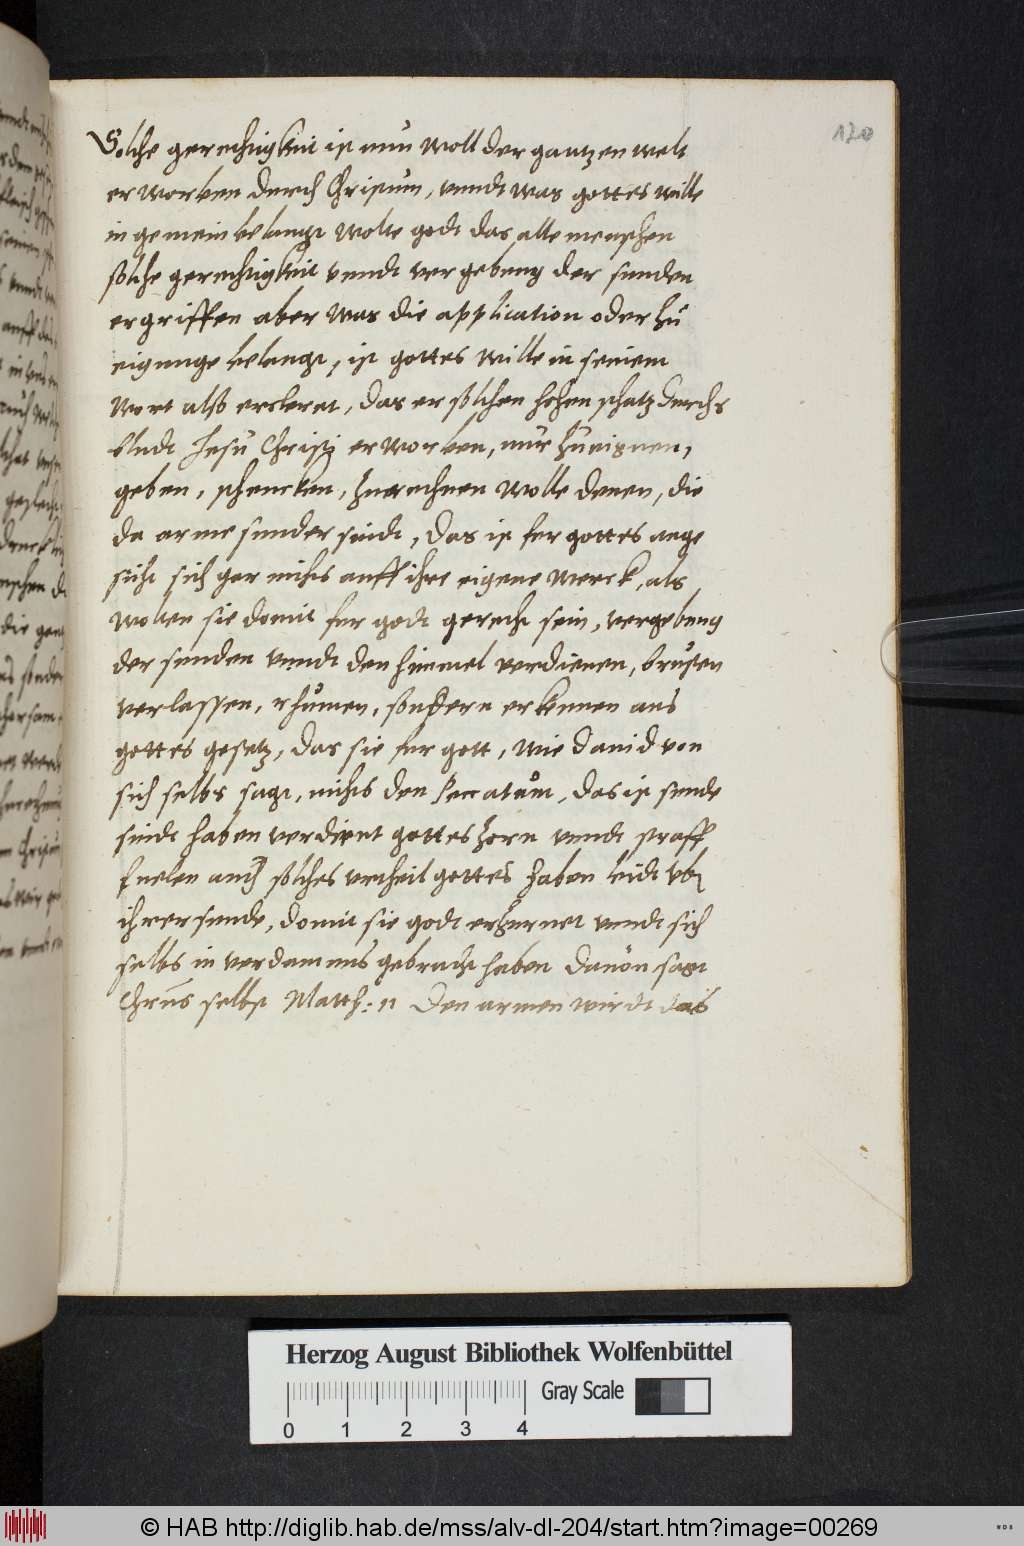 120
Solche gerechtigkeit ist nun woll der gantzen welt
erworben durch Christum, vnndt was gottes wille
in gemein belangt wolte godt das alle menschen
solche gerechtigkeit vnndt vergebung der sunden
ergriffen aber was die application oder zu
eigunge belangt, ist gottes wille in seinem
Wort also erkleret, das er solchen hohen schatz durchs
bludt Jesu Christi erworben, nur zueignen,
geben, schencken, zurechnen wolle denen, die
da arme sunder sindt, das ist fer gottes ange
sicht sich gar nichts auff ihre eigene werck, als
wolten sie domit fur godt gerecht sein, vergebung
der sunden vnndt den himmel verdienen, brusten
verlassen, rhumen, sondern erkennen aus
gottes gesetz, das sie fur gott, wie Dauid von
sich selbs sagt, nichts den peccatum, das ist sunde
sindt haben verdient gottes zorn vnndt straff
fuelen auch solches vrtheil gottes haben leidt vber
ihrer sunde, domit sie godt erzurnet vnndt sich
selbs in verdamnus gebracht haben dauon sagt
Chrus selbst Matth: 11 Den armen wirdt das
Herzog August Bibliothek Wolfenbüttel
Gray Scale
0 1 2 3 4
© HAB http://diglib.hab.de/mss/alv-dl-204/start.htm?image=00269